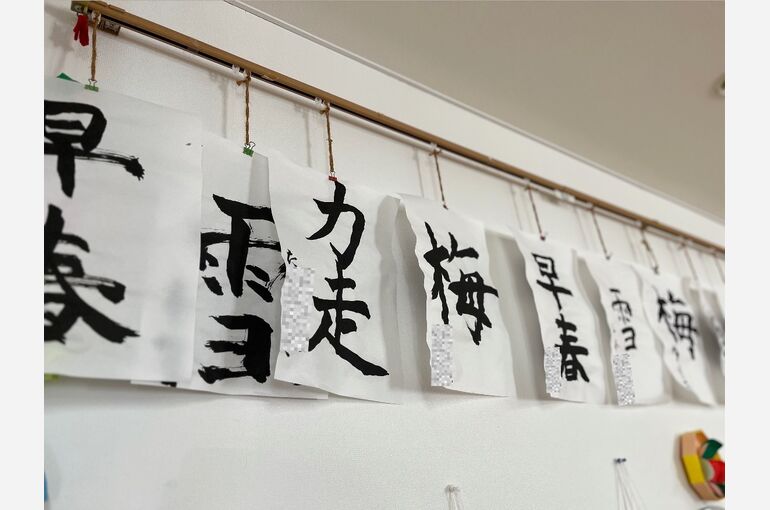 早春
雪
力走
梅
早春
雪
梅